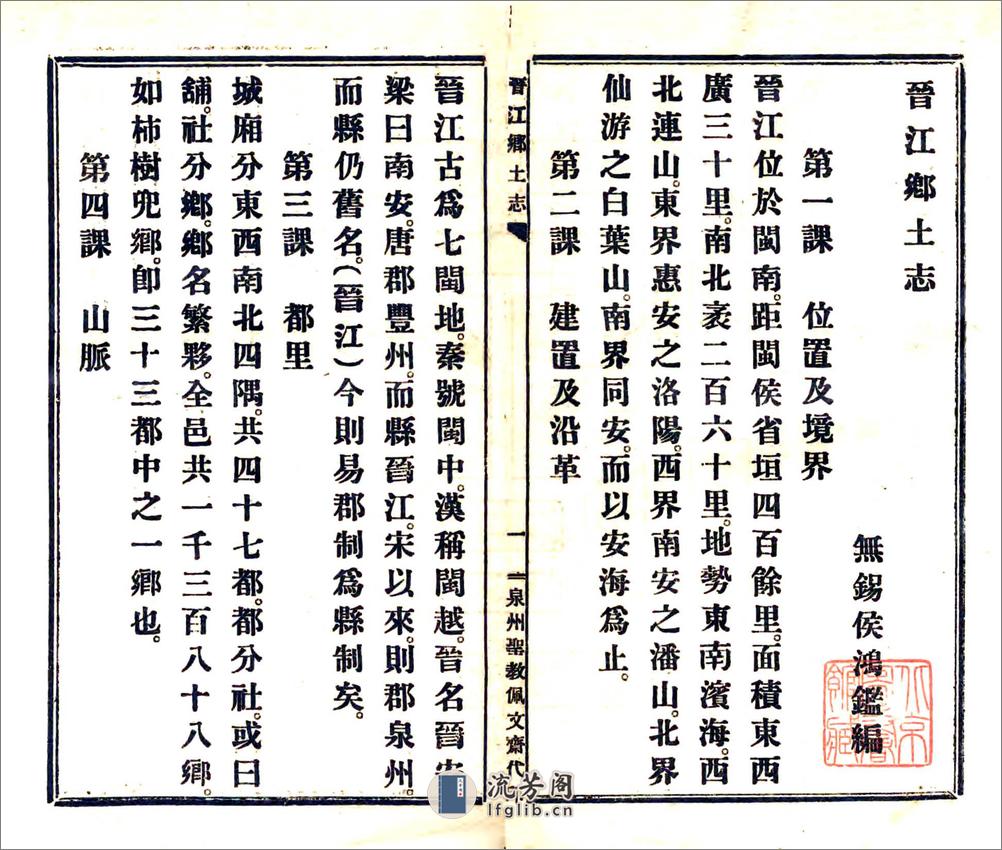 晉江鄉土志
無錫侯鴻鑑編
第一課 位置及境界
晉江位於閩南。距閩侯省垣四百餘里。面積東西
廣三十里。南北袤二百六十里。地勢東南濱海。西
北連山。東界惠安之洛陽。西界南安之潘山。北界
仙游之白葉山。南界同安。而以安海爲止。
第二課 建置及沿革
晉江鄉土志
一
泉州聖教佩文齋代
晉江古爲七閩地。秦號閩中。漢稱閩越。晉名晉安
梁曰南安。唐郡豐州。而縣晉江。宋以來。則郡泉州。
而縣仍舊名。(晉江)今則易郡制爲縣制矣。
第三課 都里
城廂分東西南北四隅。共四十七都。都分社。或曰
舖。社分鄉。鄉名繁夥。全邑共一千三百八十八鄉。
如柿樹兜鄉。卽三十三都中之一鄉也。
第四課 山脈
流芳阁
lfglib.cn